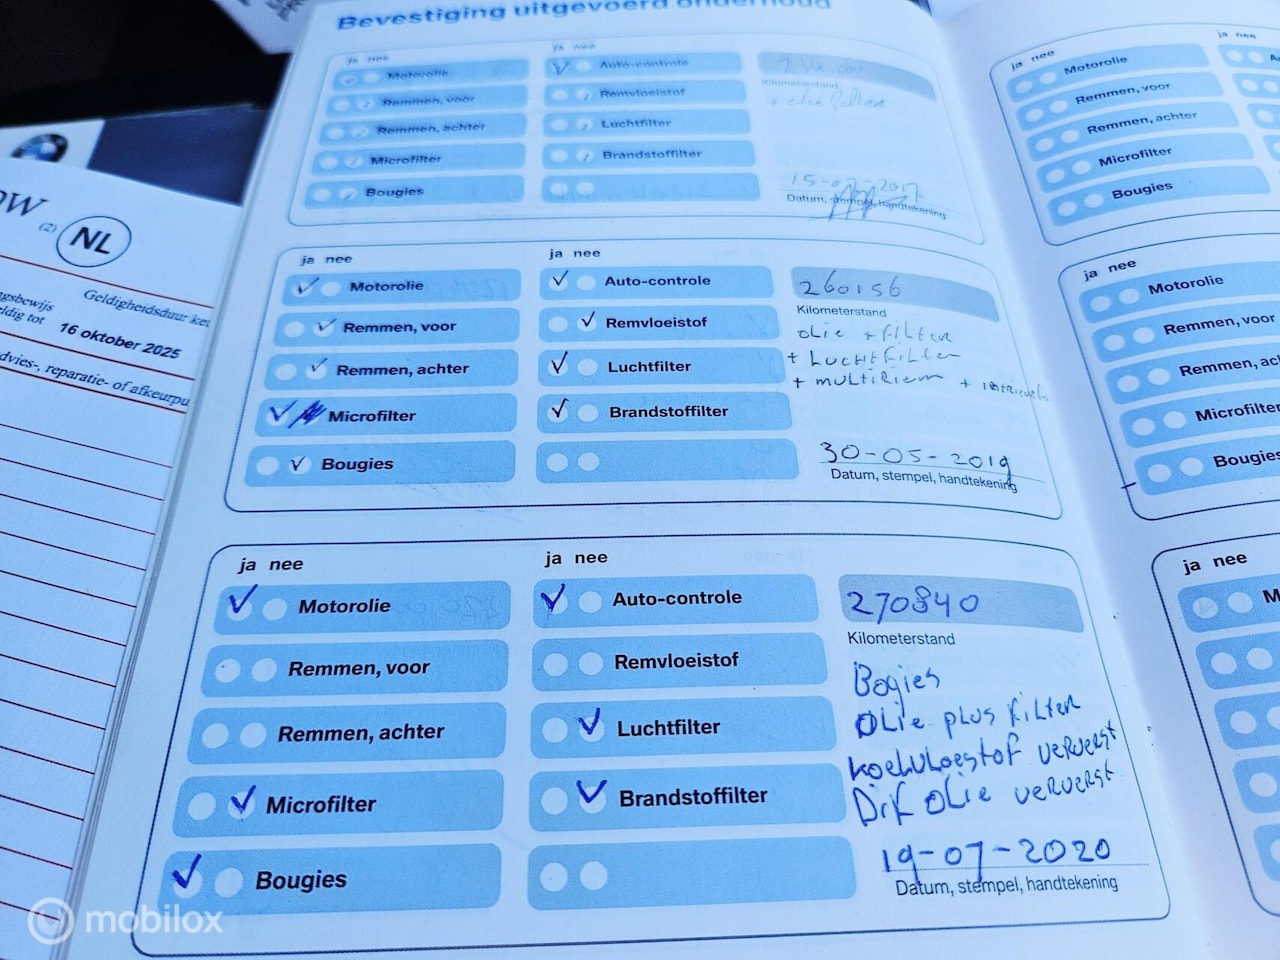 Bevestiging uitgevoerd onderhoud
ja nee
Motorolie
Remmen, voor
Remmen, achter
Microfilter
Bougies
ja nee
Auto-controle
Remvloeistof
Luchtfilter
Brandstoffilter
Kilometerstand
15-07-2017
Datum, stempel, handtekening
ja nee
Motorolie
Remmen, voor
Remmen, achter
Microfilter
Bougies
ja nee
Auto-controle
Remvloeistof
Luchtfilter
Brandstoffilter
260156
Kilometerstand
olie + filter
+ Luchtfilter
+ multiriem +
30-05-2019
Datum, stempel, handtekening
ja nee
Motorolie
Remmen, voor
Remmen, achter
Microfilter
Bougies
ja nee
Auto-controle
Remvloeistof
Luchtfilter
Brandstoffilter
270840
Kilometerstand
Bogies
OLie plus filter
koelvloestof ververst
Dif OLie ververst
19-07-2020
Datum, stempel, handtekening
ja nee
Motorolie
Remmen, voor
Remmen, achter
Microfilter
Bougies
ja nee
ja nee
Motorolie
Remmen, voor
Remmen, ac
Microfilter
Bougies
ja nee
(2)
NL
Geldigheidsduur
gsbewijs
ldig tot
16 oktober 2025
dvies-, reparatie- of afkeurpu
mobilox